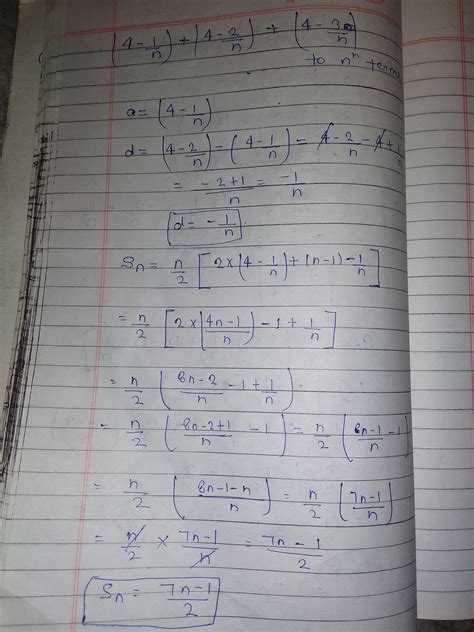 (4 - 1/n) + (4 - 2/n) + (4 - 3/n)
to nⁿ terms
a = (4 - 1/n)
d = (4 - 2/n) - (4 - 1/n) = 4 - 2/n - 4 + 1/n
= (-2+1)/n = -1/n
d = -1/n
Sn = n/2 [2 × (4 - 1/n) + (n-1) - 1/n]
= n/2 [2 × (4n-1)/n) - 1 + 1/n]
= n/2 ((8n-2)/n - 1 + 1/n)
= n/2 ((8n-2+1)/n - 1) = n/2 ((8n-1)/n - 1)
= n/2 ((8n-1-n)/n) = n/2 ((7n-1)/n)
= n/2 × (7n-1)/n = (7n-1)/2
Sn = (7n-1)/2